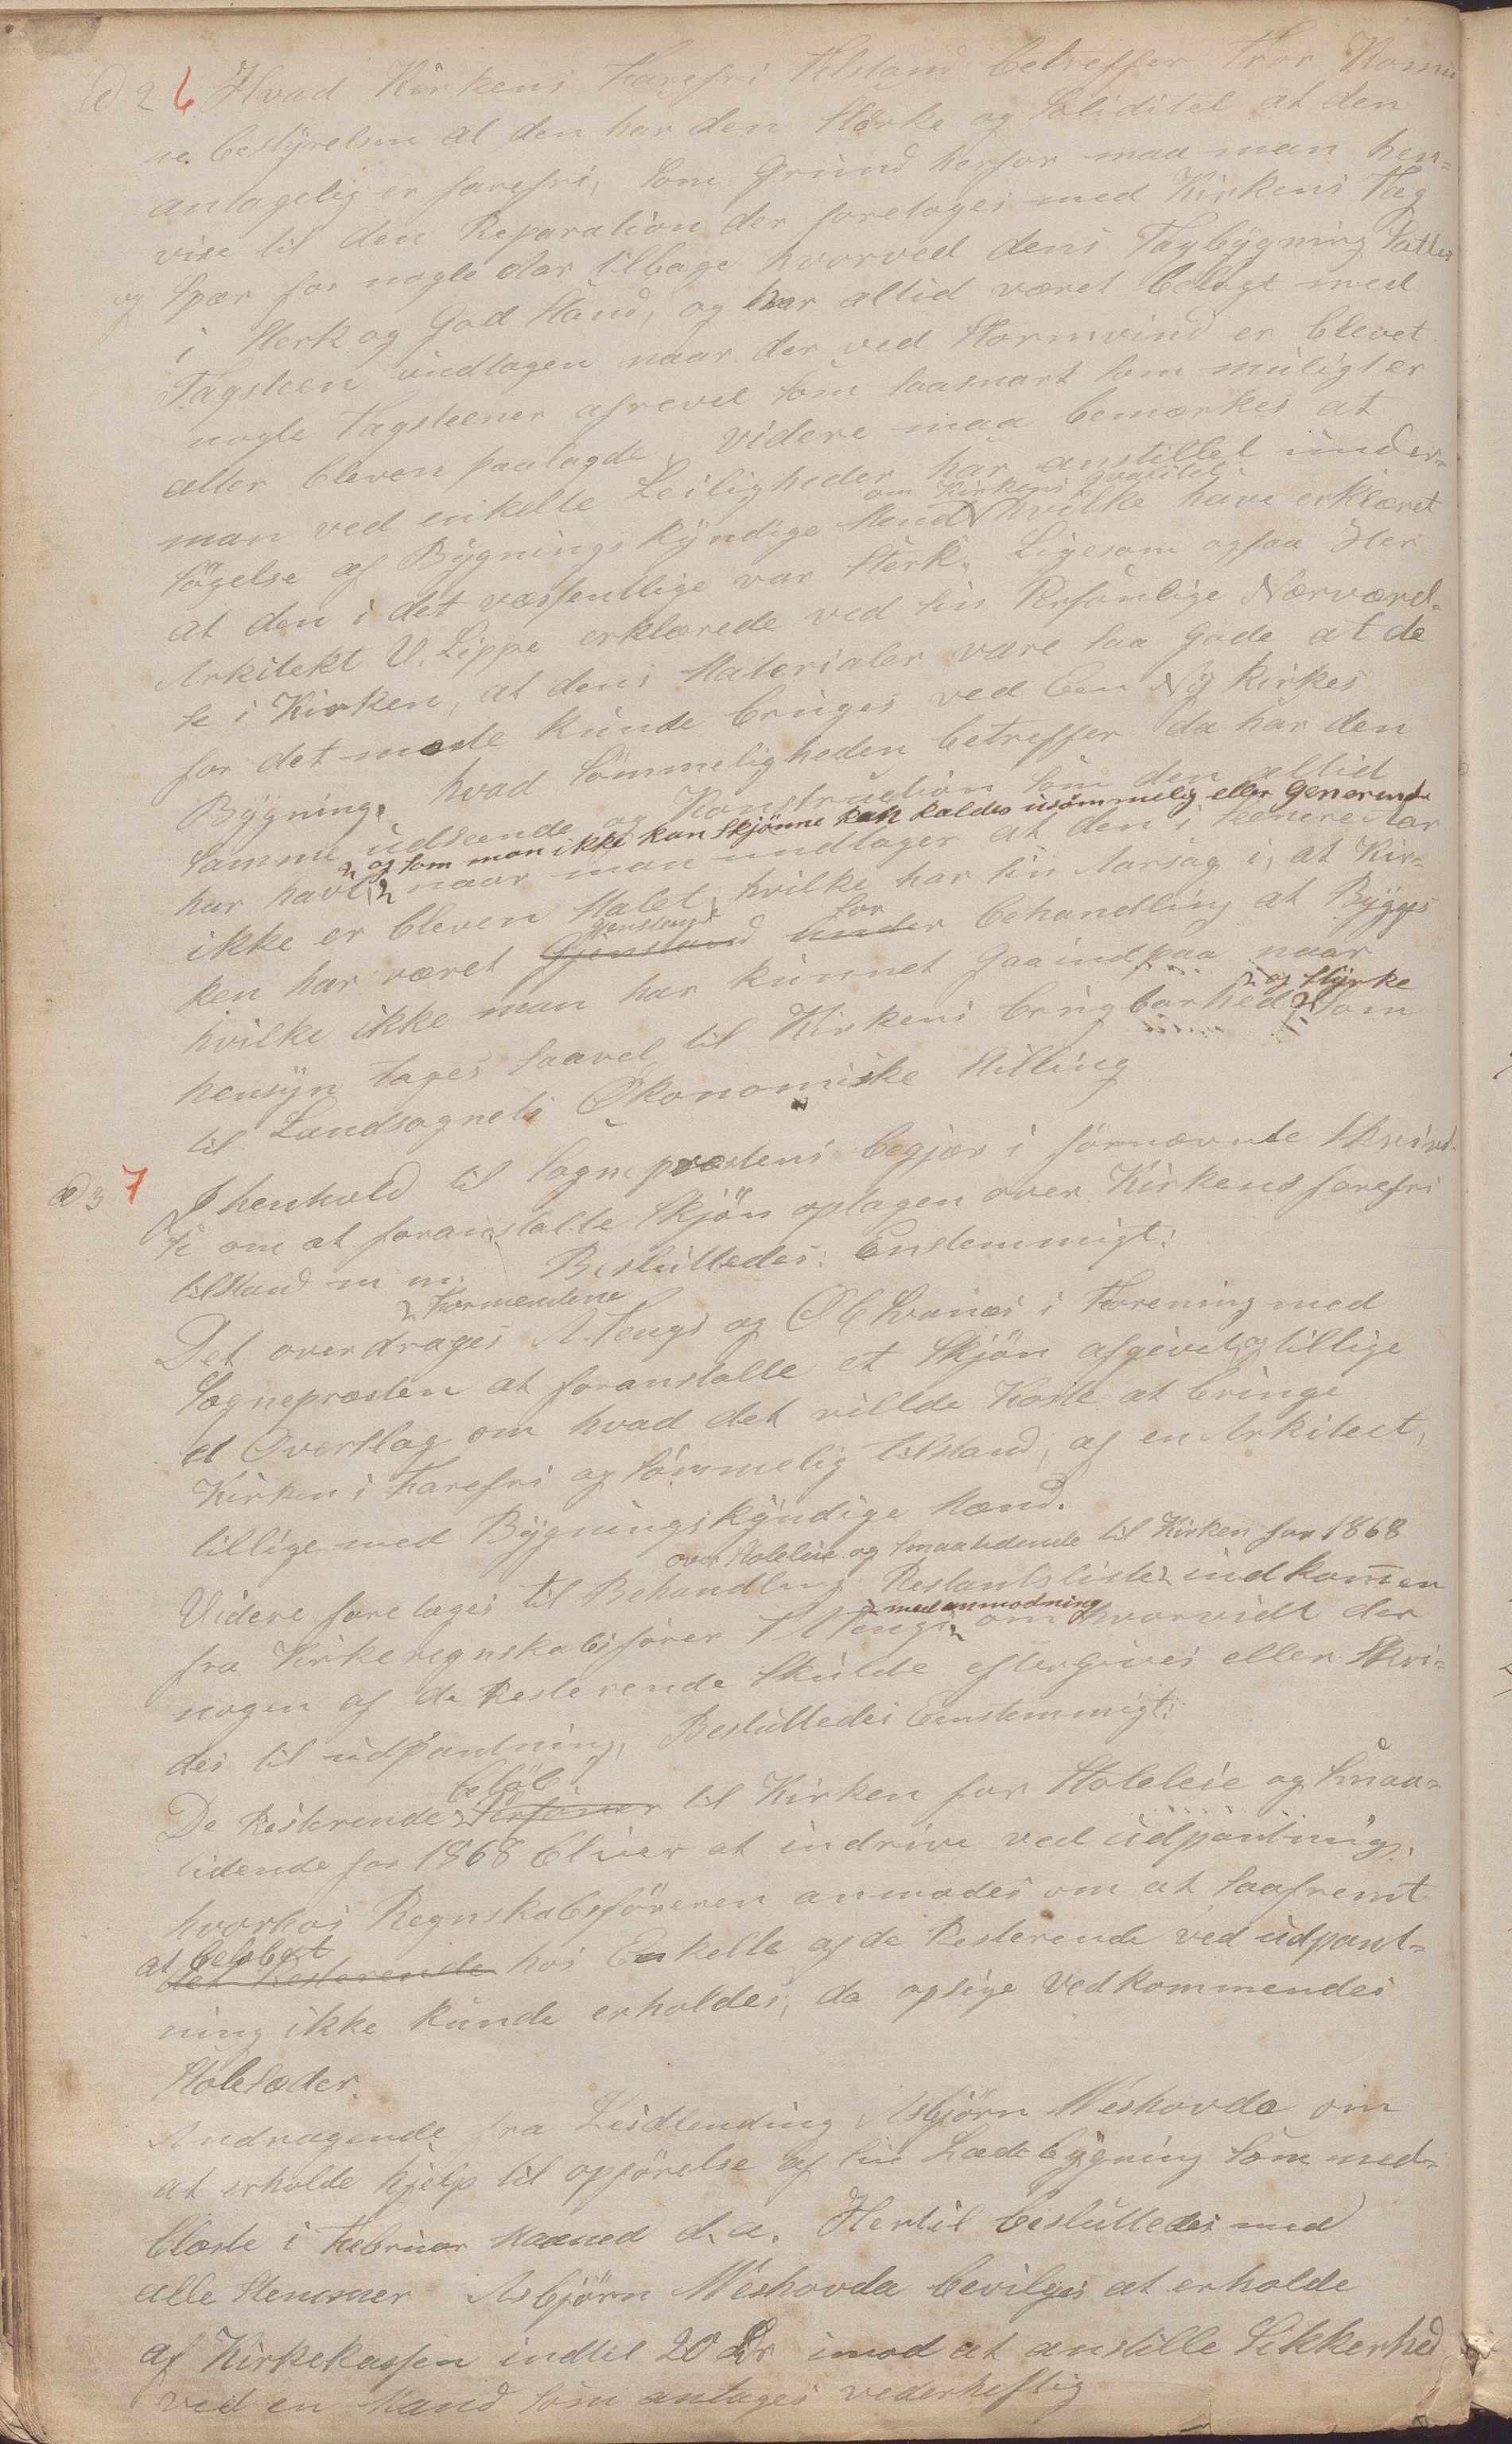 ad 2 6 Hvad Kirkens Farefri tilstand betreffer tror Komu
ne bestyrelsen at den har den Størke og Soliditet at den
antagelig er farefri, som Grund herfor maa man hen=
vise til den Reparation der foretoges med Kirkens Tag
og Spær for nogle Aar tilbage hvorved dens Tagbygning Sattes
i Sterk og God Stand, og har altid været belagt med
Tagsteen undtagen naar der ved Stormvind er blevet
nogle Tagsteener afrevet som saasnart som muligt er
atter bleven paalagde, videre maa bemærkes at
man ved enkelte Leiligheder har anstillet under=
søgelse af Bygnings Kyndige Mend om Kirkens Qvalitet hvilke have erklæret
at den i det væssentlige var Sterk. Ligesom ogsaa Her
Arkitekt V. Lippe erklærede ved sin Personlige Nærværel=
se i Kirken, at dens Materialer være saa Gode at de
for det meste kunde bruges ved een Ny Kirkes
Bygning. hvad Sømmeligheden betreffer da har den
samme udseende og Konstruction som den altid
og som man ikke kan Skjønne kan kaldes usømmelig eller Generende
har havt, naar man undtager at den i seenere Aar
ikke er bleven Malet, hvilke har sin Aarsag i, at Kir=
ken har været gjenstand for behandling at Bygges
hvilke ikke man har kunnet gaaindpaa naar
hensyn tages saavel til Kirkens brugbarhed og Styrke som
til Landsognets Økonomiske Stilling
ad 3 7 I henhold til Sognepræstens begjær i førnævnte Skrivel=
se om at foranstalte Skjøn optagen over Kirkens farefri
tilstand m m. Besluttedes Enstemmigt:
Formendene
Det overdrages A. Tengs og O E Svanes i Forening med
Sognepræsten at foranstalte et Skjøn afgivet og tillige
et Overslag om hvad det villde Koste at bringe
Kirken i Farefri og Sømmelig tilstand, af en Arkitect,
tillige med Bygningskyndige Mænd.
over Stoleleie og Smaatidende til Kirken for 1868
Videre foretoges til Behandling Restantsliste indkommen
fra Kirkeregnskabsfører T A Tengs med anmodning om hvorvidt der
nogen af de Resterende Skulde eftergives eller Skri=
des til udpantning, Besluttedes Eenstemmigt:
De Resterende beløb Personer til Kirken for Stoleleie og Smaa=
tidende for 1868 bliver at indrive ved udpantning,
hvorhos Regnskabsføreren anmodes om at saafremt
at beløbet
det Resterende hos Enkelte af de Resterende ved udpant=
ning ikke kunde erholdes, da opsige Vedkommendes
Stolesæder.
Andragende fra Leidlending Asbjørn Meshovda om
at erholde hjelp til opførelse af sin Ladebygning som ned=
blæste i Februar Maaned d. a. Hertil besluttedes med
alle Stemmer Asbjørn Meshovda bevilges at erholde
af Kirkekassen indtil 20 Spdr imod at anstille Sikkerhed
ved en Mand som antages vederheftig